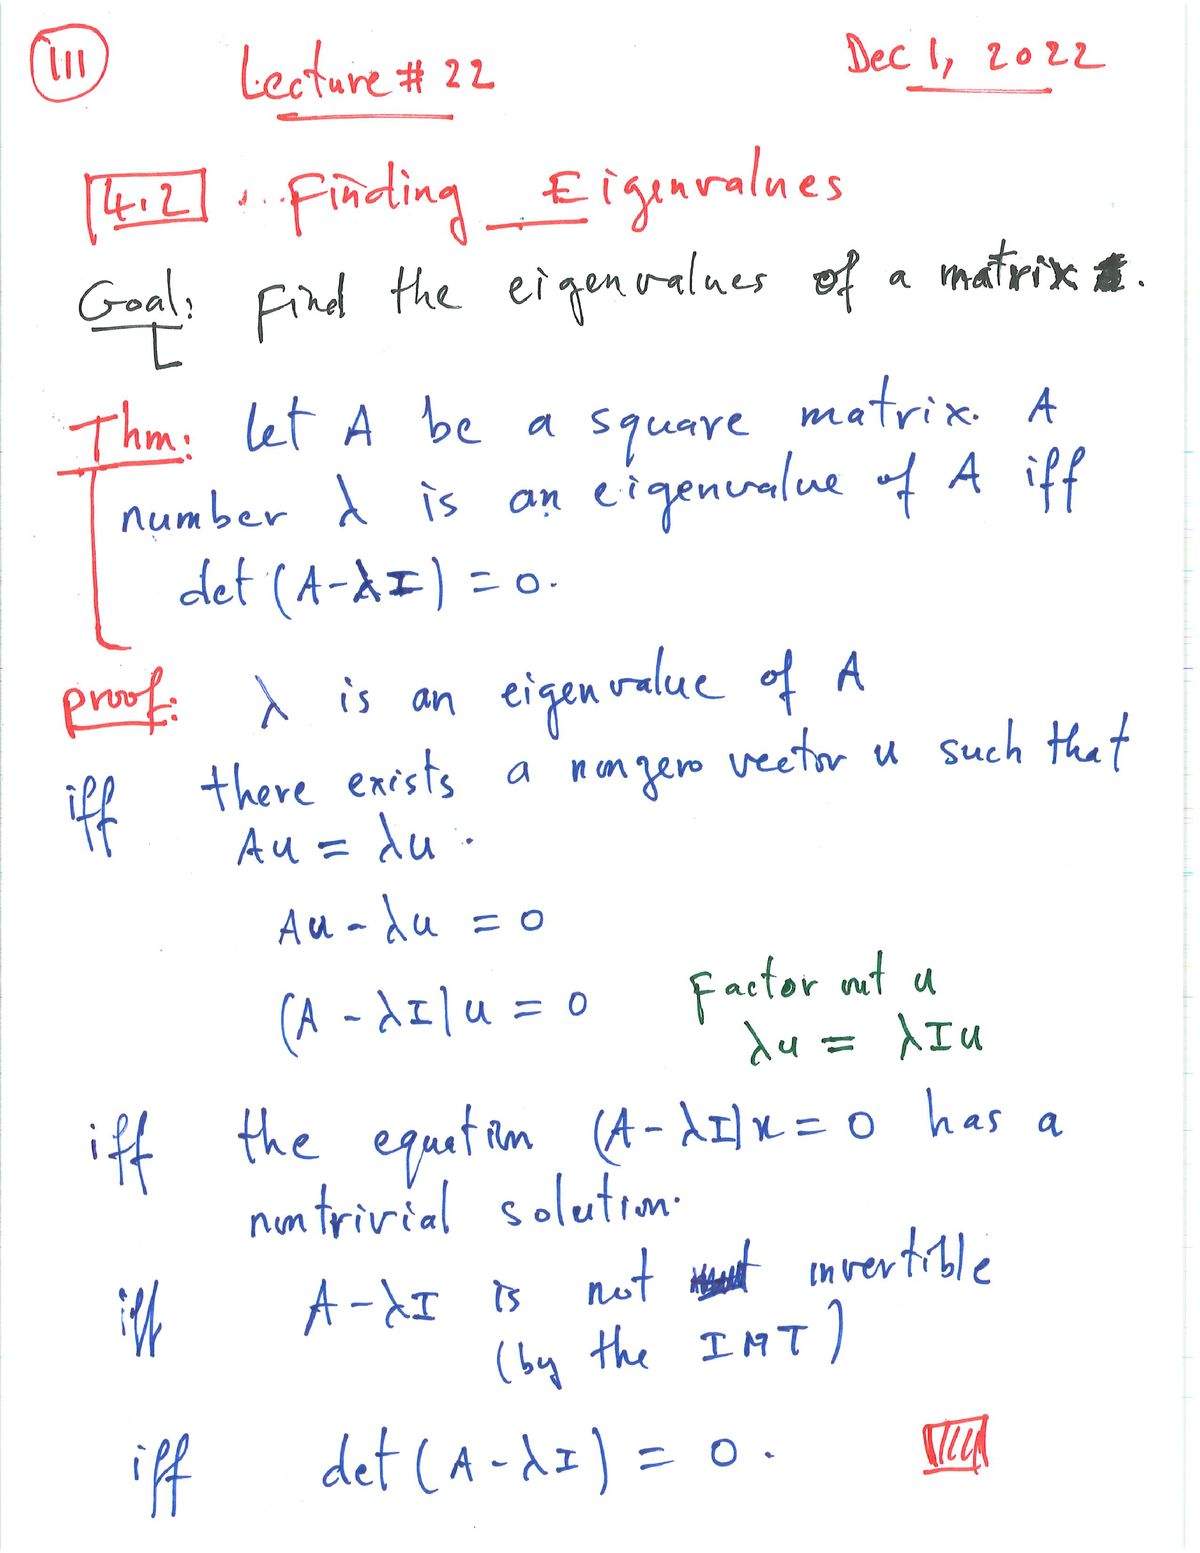 111
Lecture # 22
Dec 1, 2022
4.2 Finding Eigenvalues
Goal: Find the eigenvalues of a matrix .
Thm: let A be a square matrix. A
number λ is an eigenvalue of A iff
det (A-λI) = 0.
proof: λ is an eigenvalue of A
iff there exists a nonzero vector u such that
Au = λu .
Au - λu = 0
(A - λI)u = 0
Factor out u
λu = λIu
iff the equation (A-λI)x = 0 has a
nontrivial solution.
iff A-λI is not invertible
(by the IMT)
iff det (A-λI) = 0 .